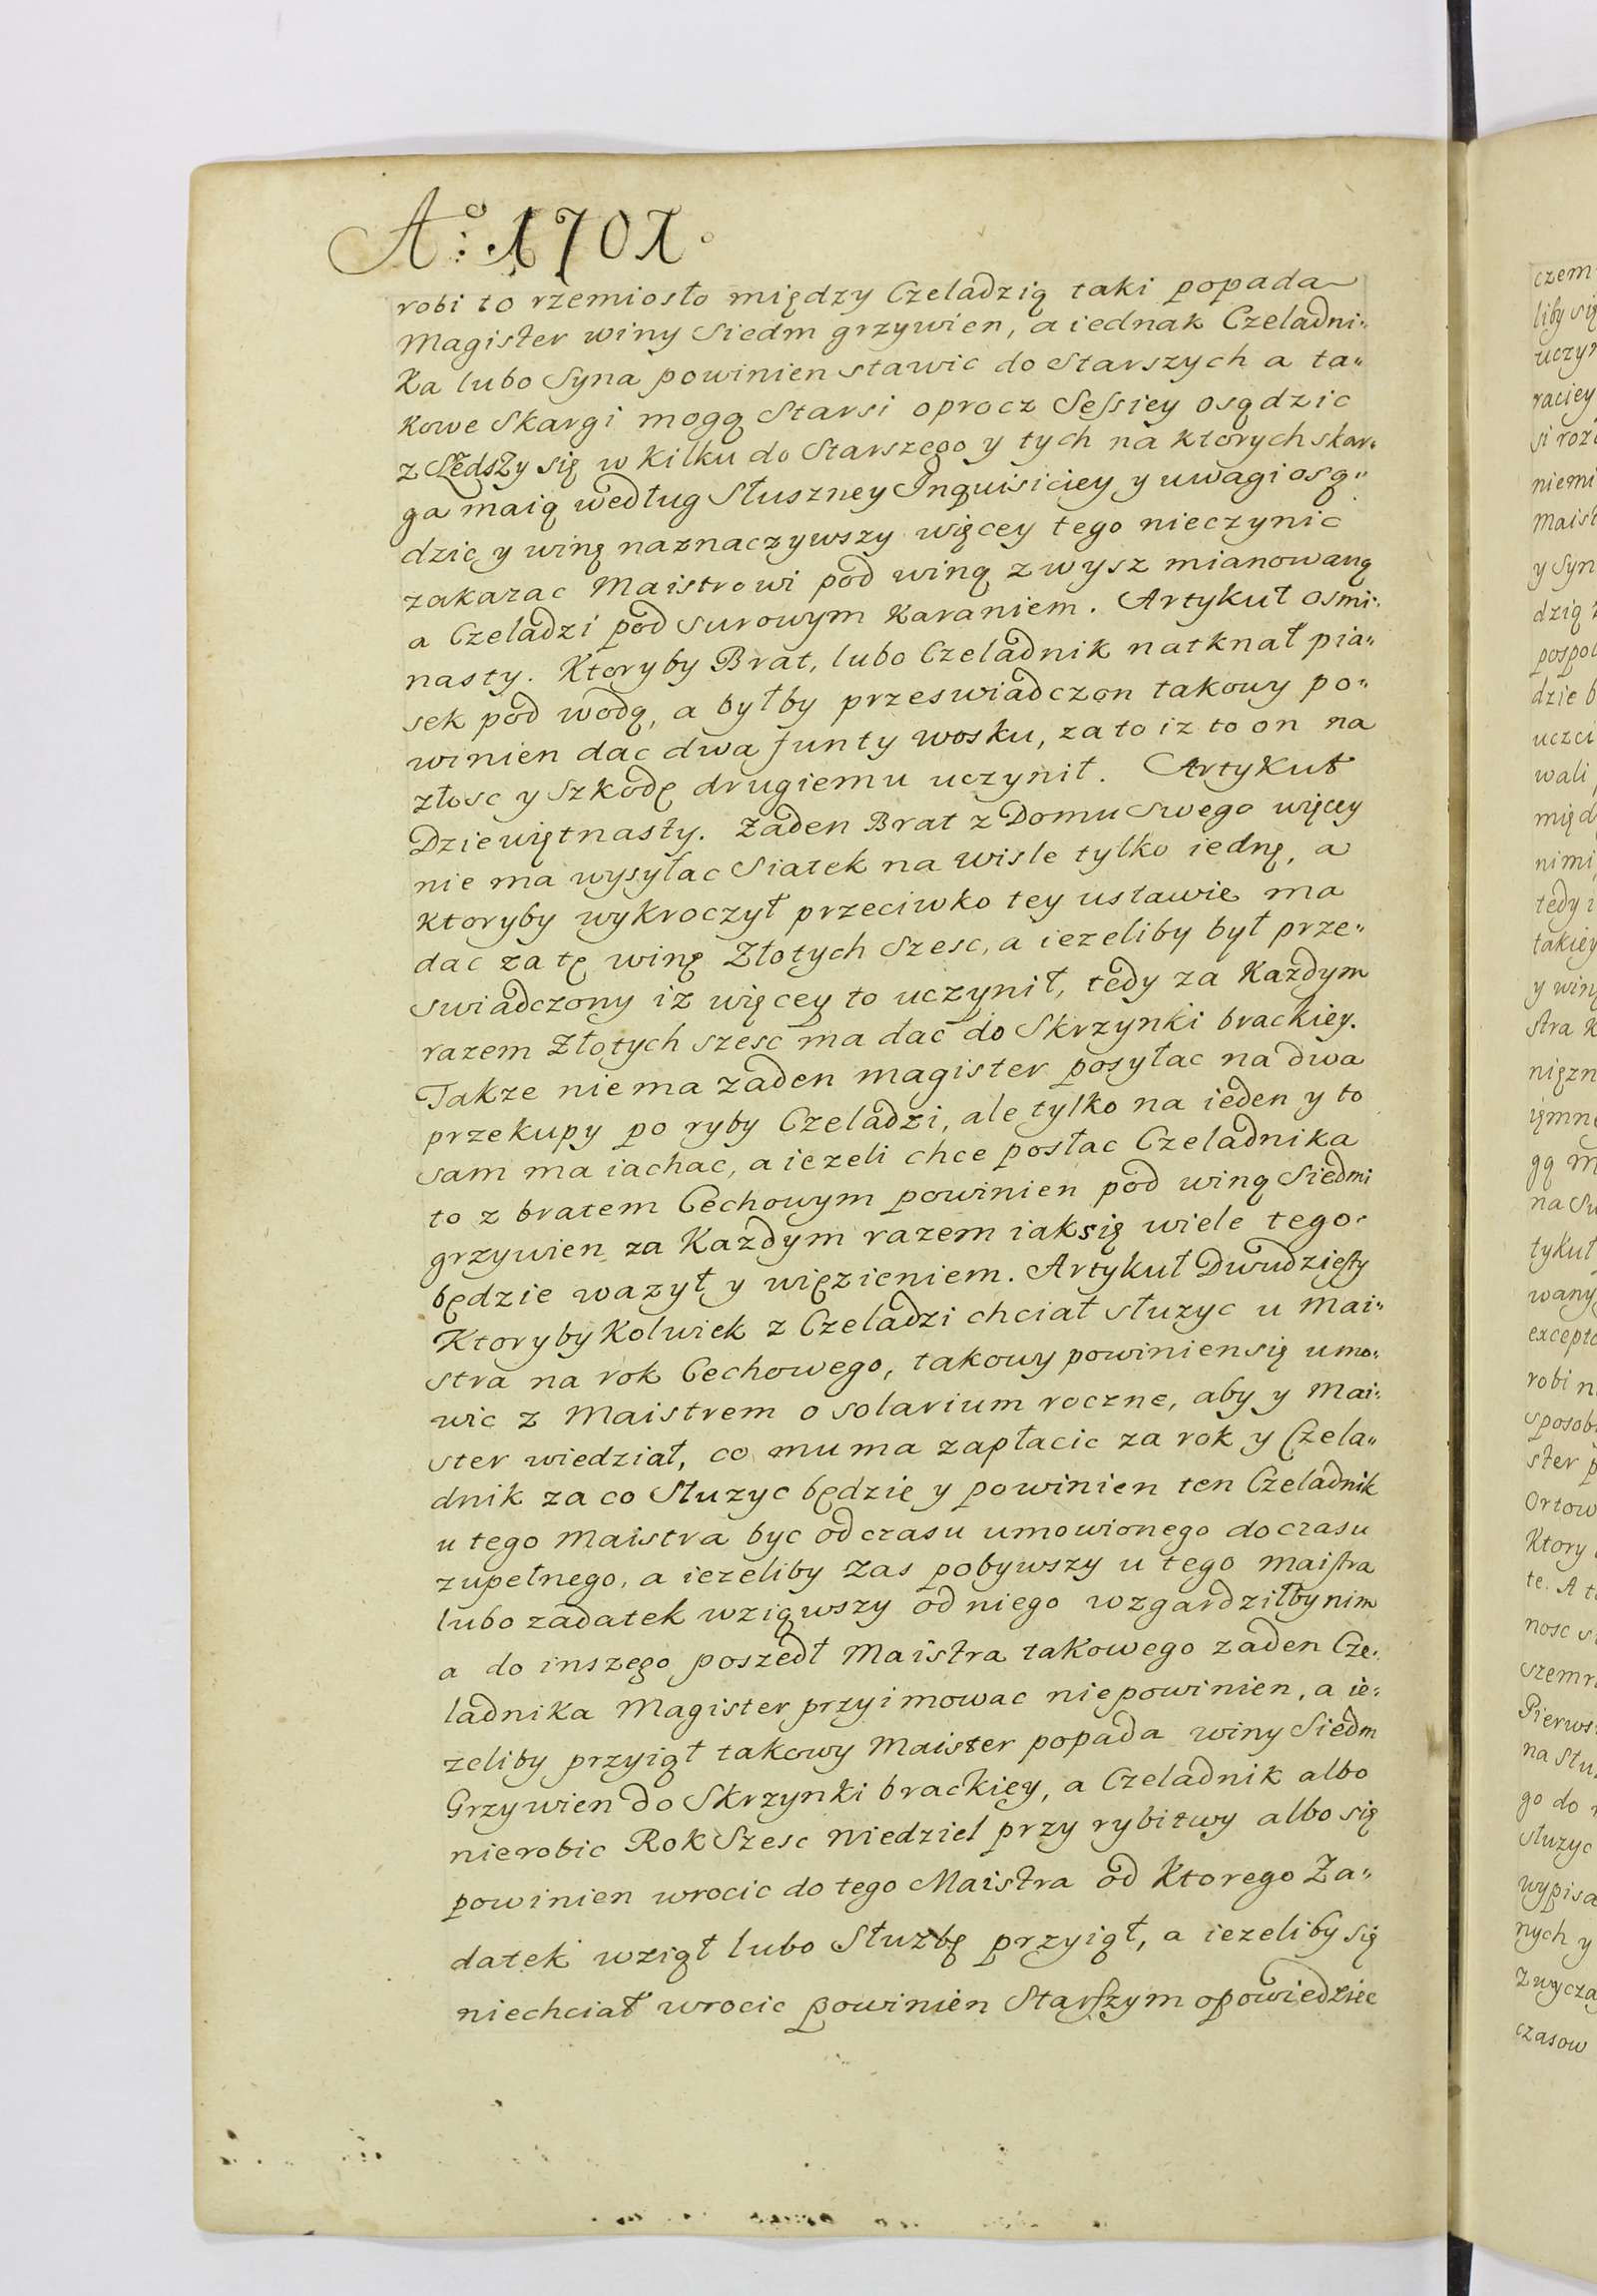 Aº: 1701.
robi to rzemiosło między Czeladzią taki popada
Magister winy Siedm grzywien, a iednak Czeladni„
Ka lubo Syna powinien stawic do Starszych a ta„
Kowe Skargi mogą Starsi oprocz Sessiey osądzic
zSzedszy się w Kilku do Starszego y tych na ktorych skar„
ga maią według Słuszney Inquisiciey y uwagi osą„
dzic y winę naznaczywszy więcey tego nieczynic
zakazac Maistrowi pod winą zwysz mianowaną
a Czeladzi pod surowym Karaniem. Artykuł osmi„
nasty. Ktoryby Brat, lubo Czeladnik natknał pia„
sek pod wodą, a byłby przeswiadczon takowy po„
winien dac dwa funty wosku, za to iz to on na
złosc y szkodę drugiemu uczynił. Artykuł
Dziewiętnasty. Zaden Brat z Domu Swego więcey
nie ma wysyłac Siatek na wisle tylko iednę, a
Ktoryby wykroczył przeciwko tey ustawie ma
dac za tę winę Złotych szesc, a iezeliby był prze„
swiadczony iz więcey to uczynił, tedy za Kazdym
razem Złotych szesc ma dac do Skrzynki brackiey.
Takze niema zaden magister posyłac na dwa
przekupy po ryby Czeladzi, ale tylko na ieden y to
sam ma iachac, a iezeli chce posłac Czeladnika
to z bratem Cechowym powinien pod winą Siedmi
grzywien za Kazdym razem iaksię wiele tego
będzie wazył y więzieniem. Artykuł Dwudziesty
Ktoryby Kolwiek z Czeladzi chciał słuzyc u Mai„
stra na rok Cechowego, takowy powiniensię umo„
wic z Maistrem o solarium roczne, aby y Mai„
ster wiedział, co mu ma zapłacic za rok y Czela„
dnik za co Słuzyc będzie y powinien ten Czeladnik
u tego Maistra byc od czasu umowionego do czasu
zupełnego, a iezeliby zas pobywszy u tego maistra
lubo zadatek wziąwszy od niego wzgardziłby nim
a do inszego poszedł Maistra takowego zaden Cze„
ladnika Magister przyimowac niepowinien, a ie„
zeliby przyiął takowy Maister popada winy Siedm
Grzywien do Skrzynki brackiey, a Czeladnik albo
nierobic Rok Szesc Niedziel przy rybitwy albo się
powinien wrocic do tego Maistra od Ktorego Za„
datek wziął lubo Słuzbę przyiął, a iezeliby się
niechciał wrocic powinien Starszym opowiedziec